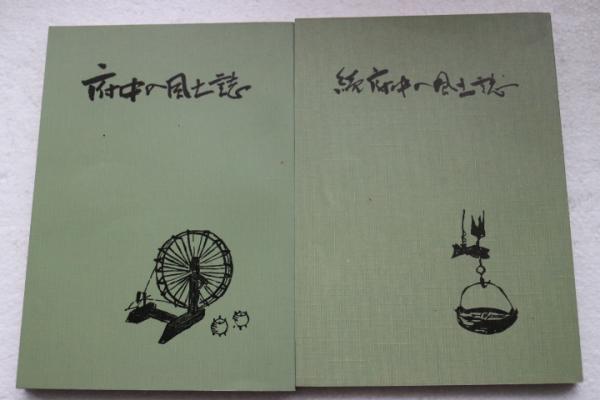 府中の風土誌
続府中の風土誌